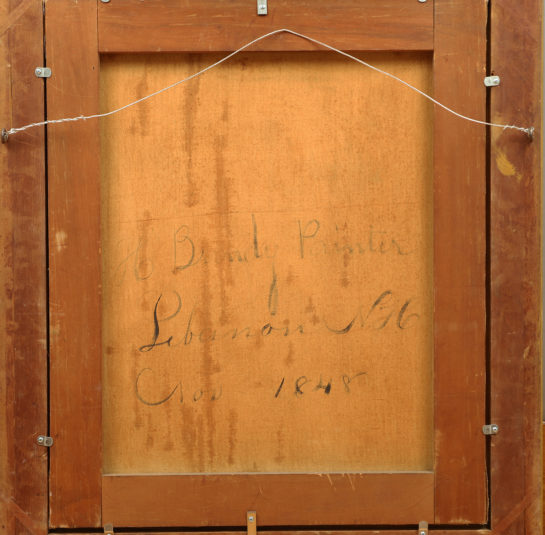 H Bundy Painter
Lebanon NH
Nov 1848